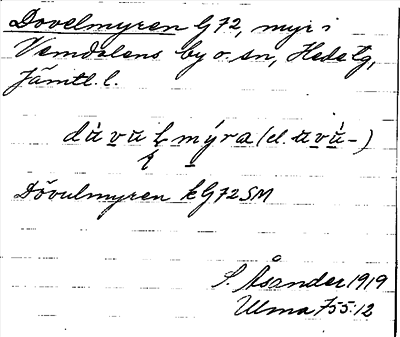 Dovelmyren G72, myr i
Vemdalens by o. sn, Hede tg,
Jämtl. l.
dùvulmýra (el. uvù-)
Dövulmyren k G72 SM
S. Åsander 1919
Ulma 755:12